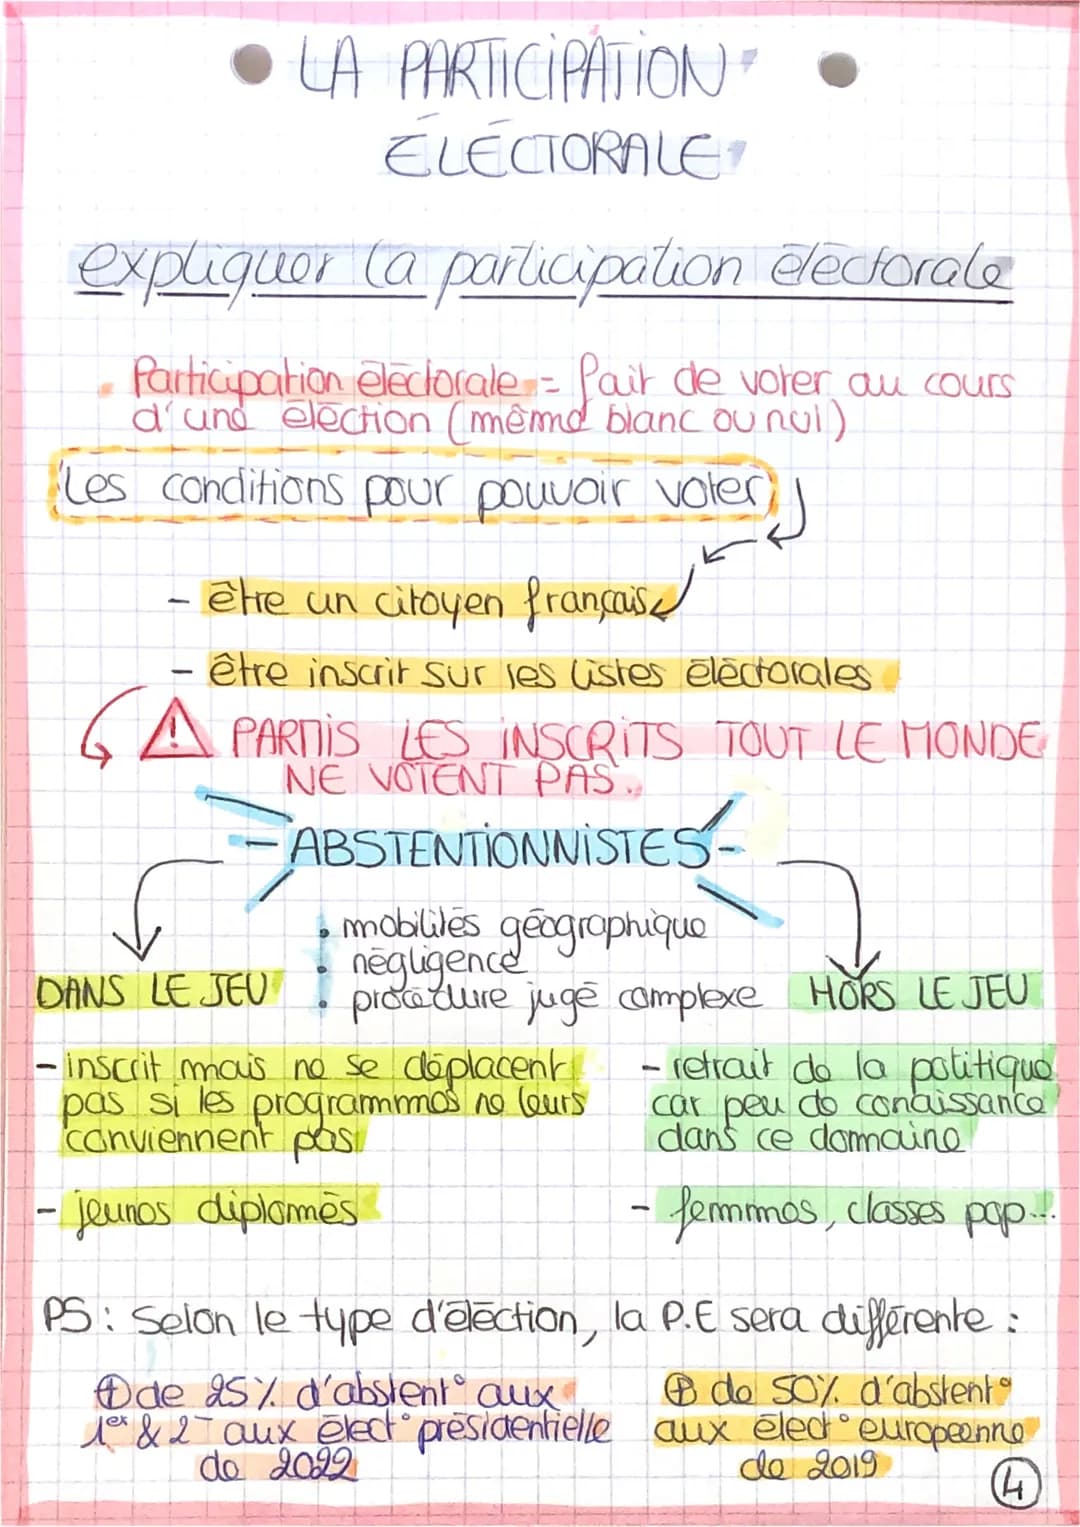 LA PARTICIPATION
ÉLÉCTORALE
expliquer la participation éléctorale
Participation éléctorale = fait de voter au cours
d'une éléction (même blanc ou nul)
Les conditions pour pouvoir voter
- être un citoyen français
- être inscrit sur les listes éléctorales
! PARMIS LES INSCRITS TOUT LE MONDE
NE VOTENT PAS.
- ABSTENTIONNISTES -
• mobilités géographique
• négligence
• procédure jugé complexe
DANS LE JEU
- inscrit mais ne se déplacent
pas si les programmes ne leurs
conviennent pas
- jeunes diplomés
HORS LE JEU
- retrait de la politique
car peu de conaissance
dans ce domaine
- femmes, classes pop...
PS : Selon le type d'éléction, la P.E sera différente :
⊕ de 25% d'abstent° aux
1er & 2- aux élect° présidentielle
de 2022
⊕ de 50% d'abstent°
aux élect° européenne
de 2019
4